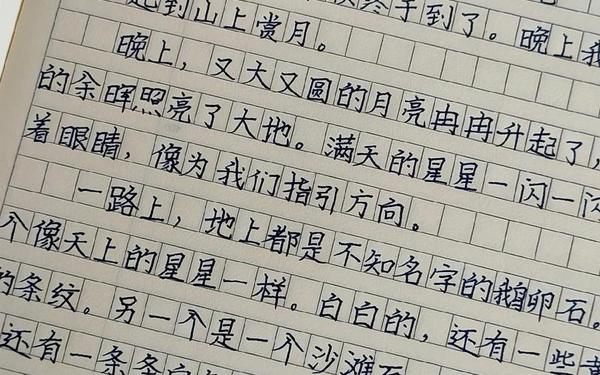 起到山上赏月。 终于到了。晚上我
晚上，又大又圆的月亮冉冉升起了，
的余晖照亮了大地。满天的星星一闪一闪
着眼睛，像为我们指引方向。
一路上，地上都是不知名字的鹅卵石。
个像天上的星星一样。白白的，还有一些黄
的条纹。另一个是一个沙滩石
还有一条条